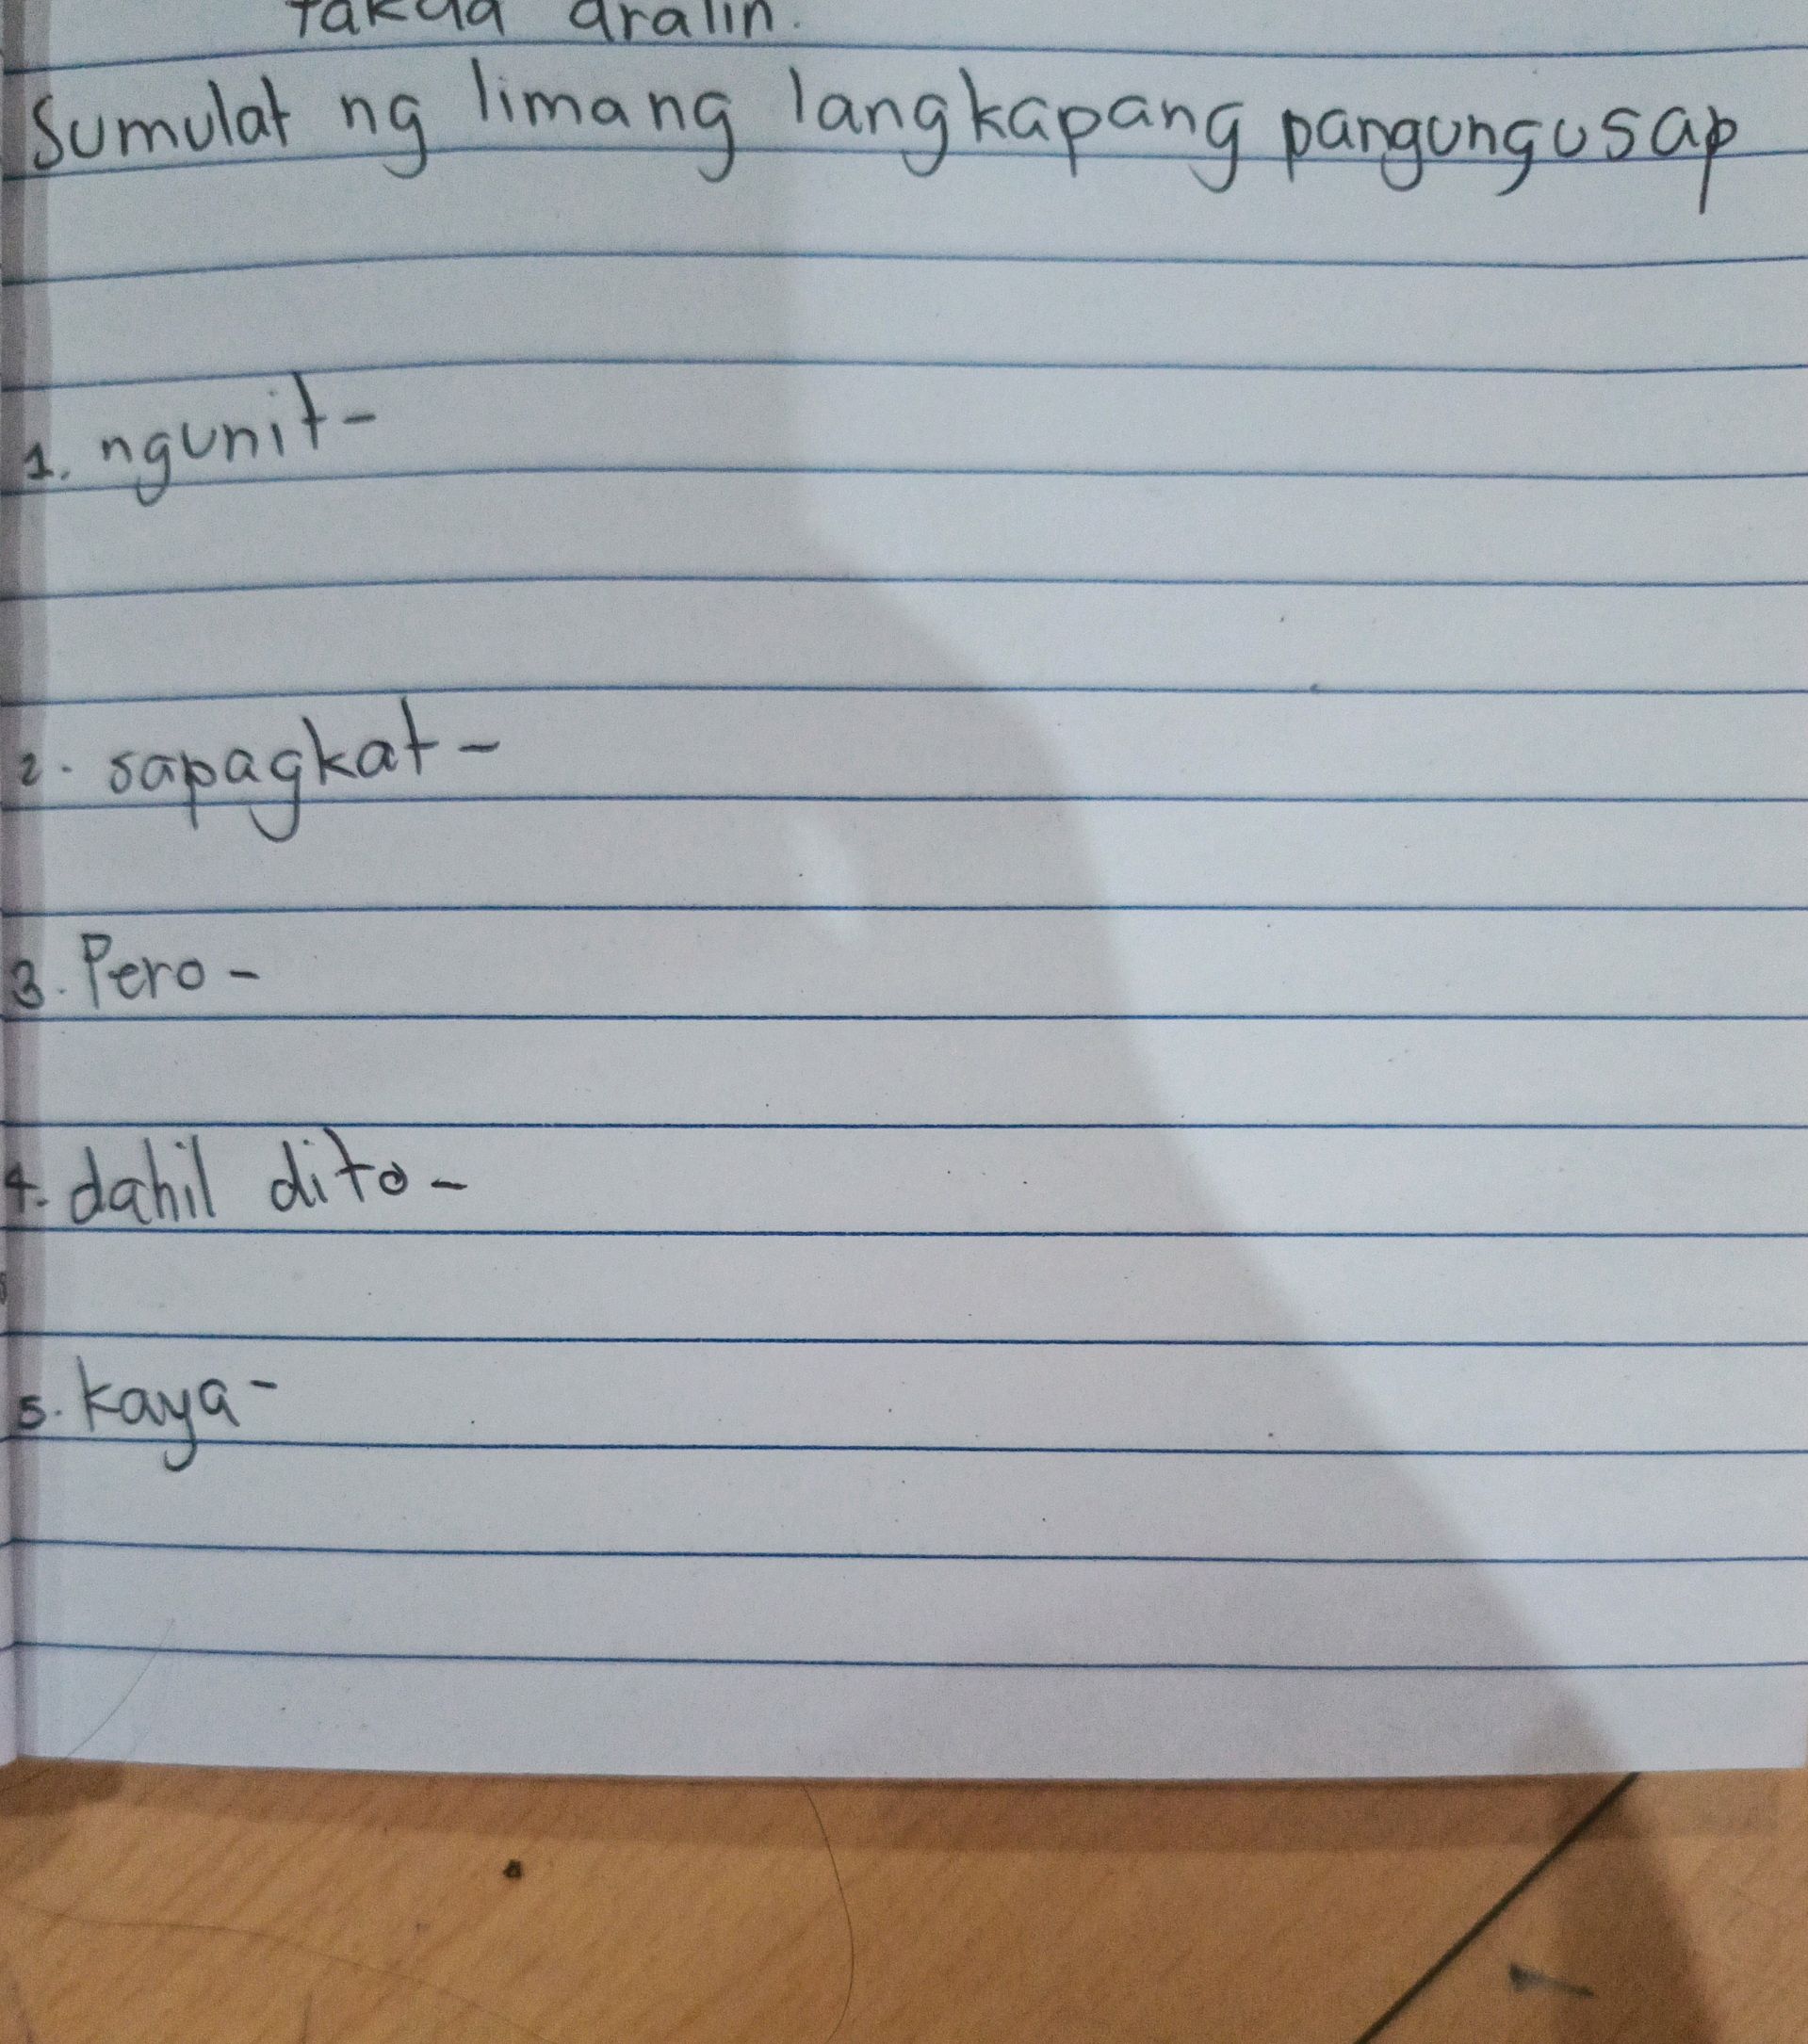 takda aralin.
Sumulat ng limang langkapang pangungusap
1. ngunit-
2. sapagkat-
3. Pero-
4. dahil dito-
5. kaya-